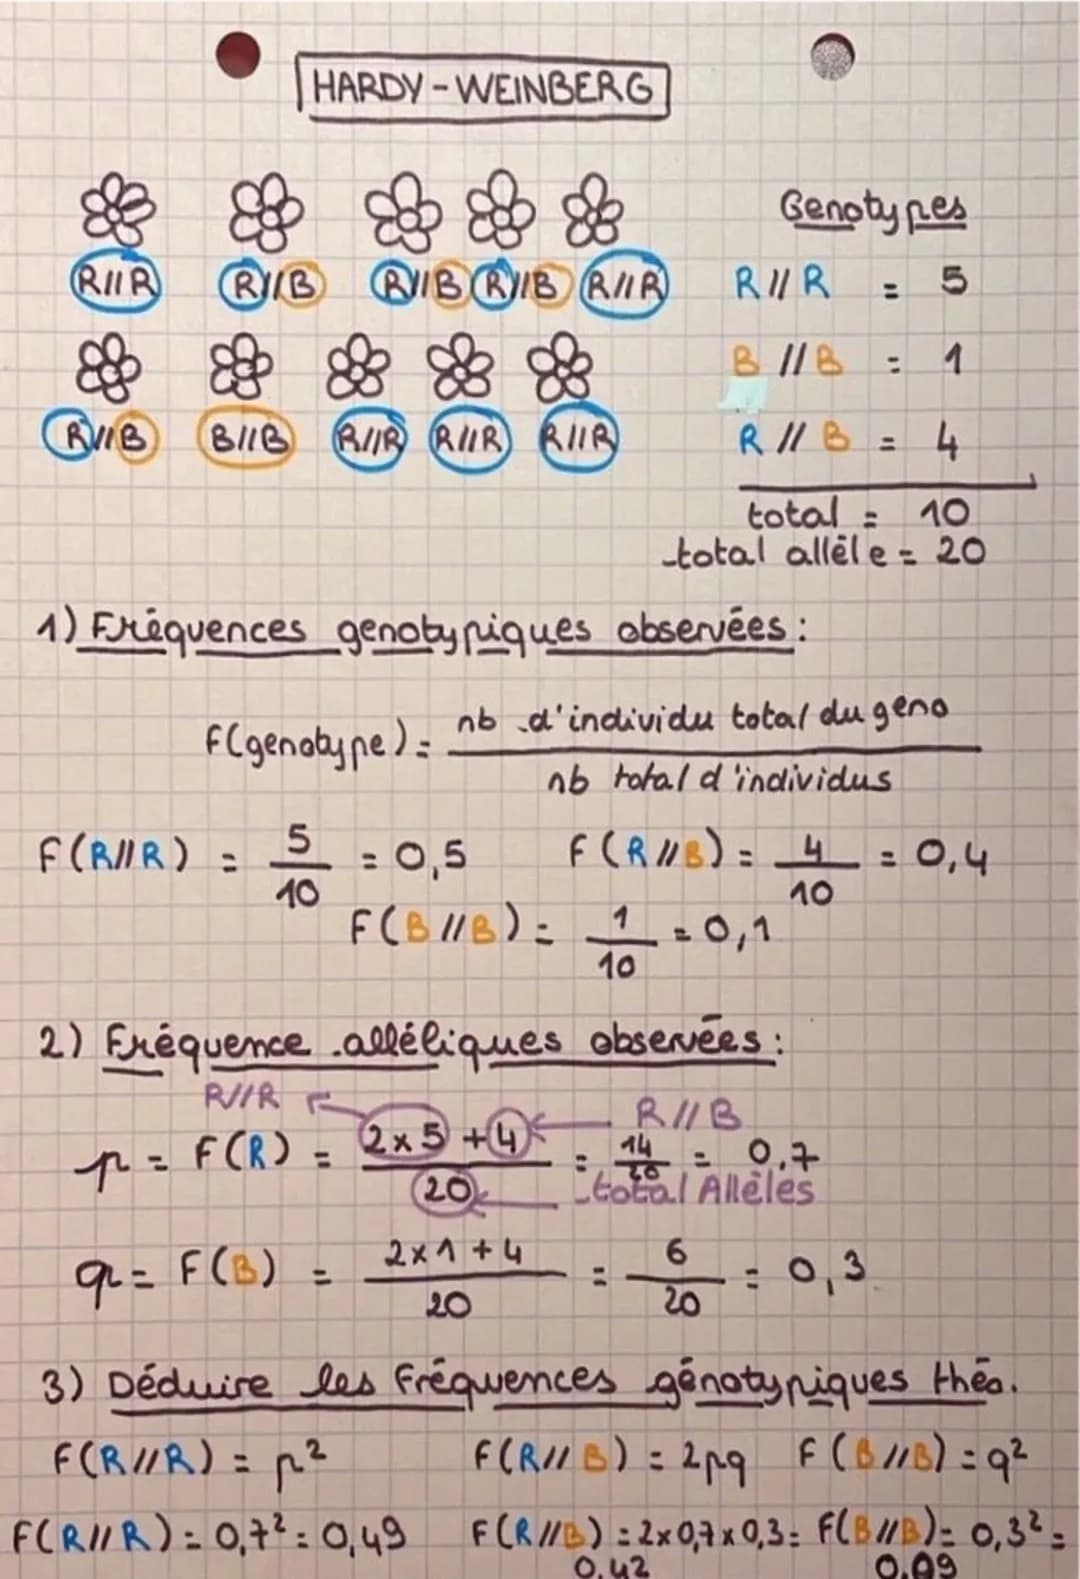 HARDY - WEINBERG
Genotypes
R//R R//B R//B R//B R//R
R//R = 5
B//B = 1
R//B B//B R//R R//R R//R
R//B = 4
total = 10
total allèle = 20
1) Fréquences genotypiques observées :
F(genotype) = nb d'individu total du geno
nb total d'individus
F(R//R) = 5/10 = 0,5 F(R//B) = 4/10 = 0,4
F(B//B) = 1/10 = 0,1
2) Fréquence alléliques observées :
R//R R//B
p = F(R) = 2x5 + 4 / 20 = 14/20 = 0,7
total Allèles
q = F(B) = 2x1 + 4 / 20 = 6/20 = 0,3
3) Déduire les fréquences génotypiques théo.
F(R//R) = p² F(R//B) = 2pq F(B//B) = q²
F(R//R) = 0,7² = 0,49 F(R//B) = 2x0,7x0,3 = F(B//B) = 0,3² =
0,42 0,09